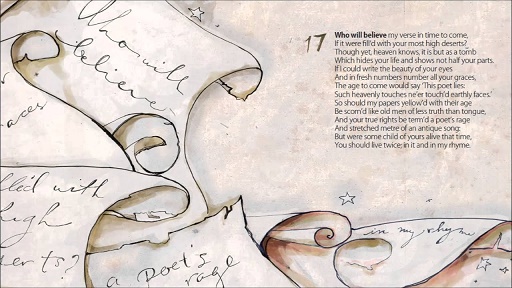 Who will
believe
aces
lled with
high
er ts?
a poet's
rage
in my rhyme
17
Who will believe my verse in time to come,
If it were fill'd with your most high deserts?
Though yet, heaven knows, it is but as a tomb
Which hides your life and shows not half your parts.
If I could write the beauty of your eyes
And in fresh numbers number all your graces,
The age to come would say 'This poet lies:
Such heavenly touches ne'er touch'd earthly faces.'
So should my papers yellow'd with their age
Be scorn'd like old men of less truth than tongue,
And your true rights be term'd a poet's rage
And stretched metre of an antique song:
But were some child of yours alive that time,
You should live twice; in it and in my rhyme.